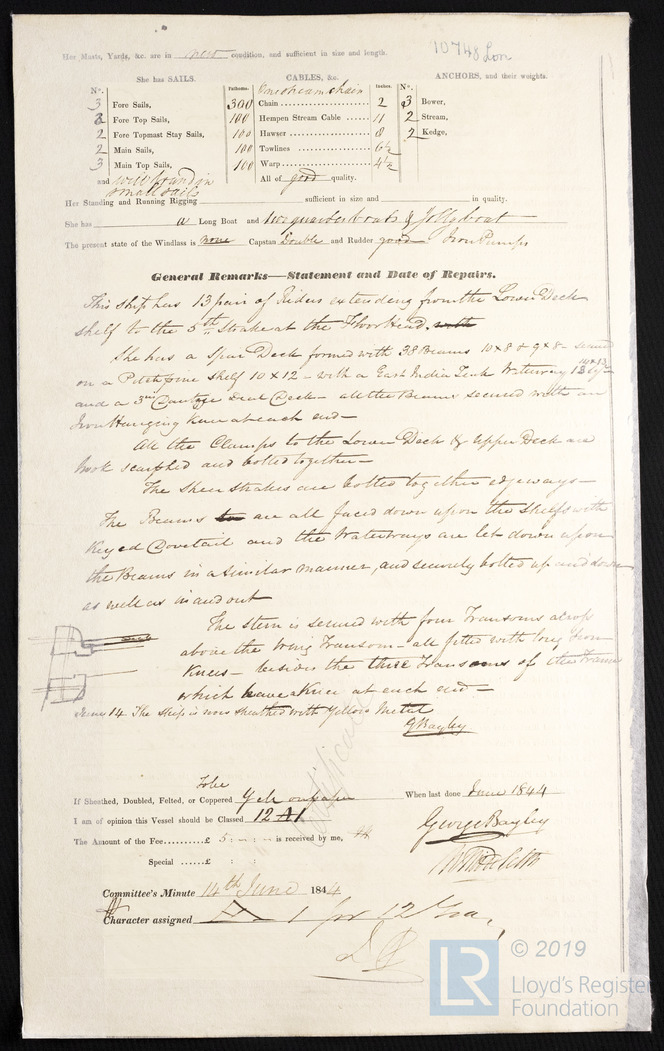 10748 Lon
Her Masts, Yards, &c. are in new condition, and sufficient in size and length.
She has SAILS.
CABLES, &c.
ANCHORS, and their weights.
N°.
Fathoms.
Inches.
N°.
One stream chain
3 Fore Sails,
300 Chain 2
3 Bower,
3 Fore Top Sails,
100 Hempen Stream Cable 11
2 Stream,
2 Fore Topmast Stay Sails,
100 Hawser 8
2 Kedge,
2 Main Sails,
100 Towlines 6½
3 Main Top Sails,
100 Warp 4½
and well found in
small sails
All of good quality.
Her Standing and Running Rigging sufficient in size and in quality.
She has a Long Boat and two quarter boats & Jolly boat
The present state of the Windlass is none Capstan Double and Rudder good Iron Pumps
General Remarks—Statement and Date of Repairs.
This ship has 13 pair of Riders extending from the Lower Deck
shelf to the 5th Strake at the Floorhead. with
She has a Spar Deck formed with 38 Beams 10 x 8 & 9 x 8 - secured
on a Pitch pine shelf 10 x 12 - with a East India Teak Waterway
and a 3 in Deal Deck - all the Beams secured with an
Iron Hanging knee at each end -
All the Clamps to the Lower Deck & Upper Deck are
hook scarphed and bolted together -
The Sheer Strakes are bolted together edgeways -
The Beams are all faced down upon the shelfs with
Keyed Dovetail and the Waterways are let down upon
the Beams in a similar manner, and securely bolted up and down
as well as in and out
The stern is secured with four Transoms across
above the Wing Transom - all fitted with long Iron
Knees - besides the three Transoms of the Frame
which have a Knee at each end -
June 14 The ship is now sheathed with Yellow Metal
G Bayley
To be
If Sheathed, Doubled, Felted, or Coppered
When last done June 1844
I am of opinion this Vessel should be Classed 12 A1
George Bayley
The Amount of the Fee £ 5 : - : - is received by me,
Special £ : :
Certificate
Committee's Minute 14th June 1844
Character assigned A 1 for 12 Yrs.
LR
© 2019
Lloyd's Register
Foundation